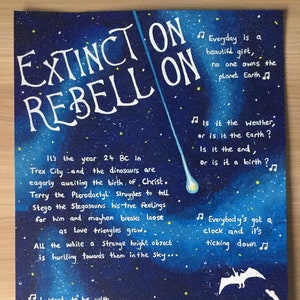 EXTINCT ON
REBELL ON
Everyday is a
beautiful gift,
no one owns the
planet Earth
Is it the weather,
or is it the Earth?
Is it the end,
or is it a birth?
It's the year 24 BC in
Trex City and the dinosaurs are
eagerly awaiting the birth of Christ.
Terry the Pterodactyl struggles to tell
Stego the Stegosaurus his true feelings
for him and mayhem breaks loose
as love triangles grow.
All the while a strange bright object
is hurtling towards them in the sky...
Everybody's got a
clock and it's
ticking down